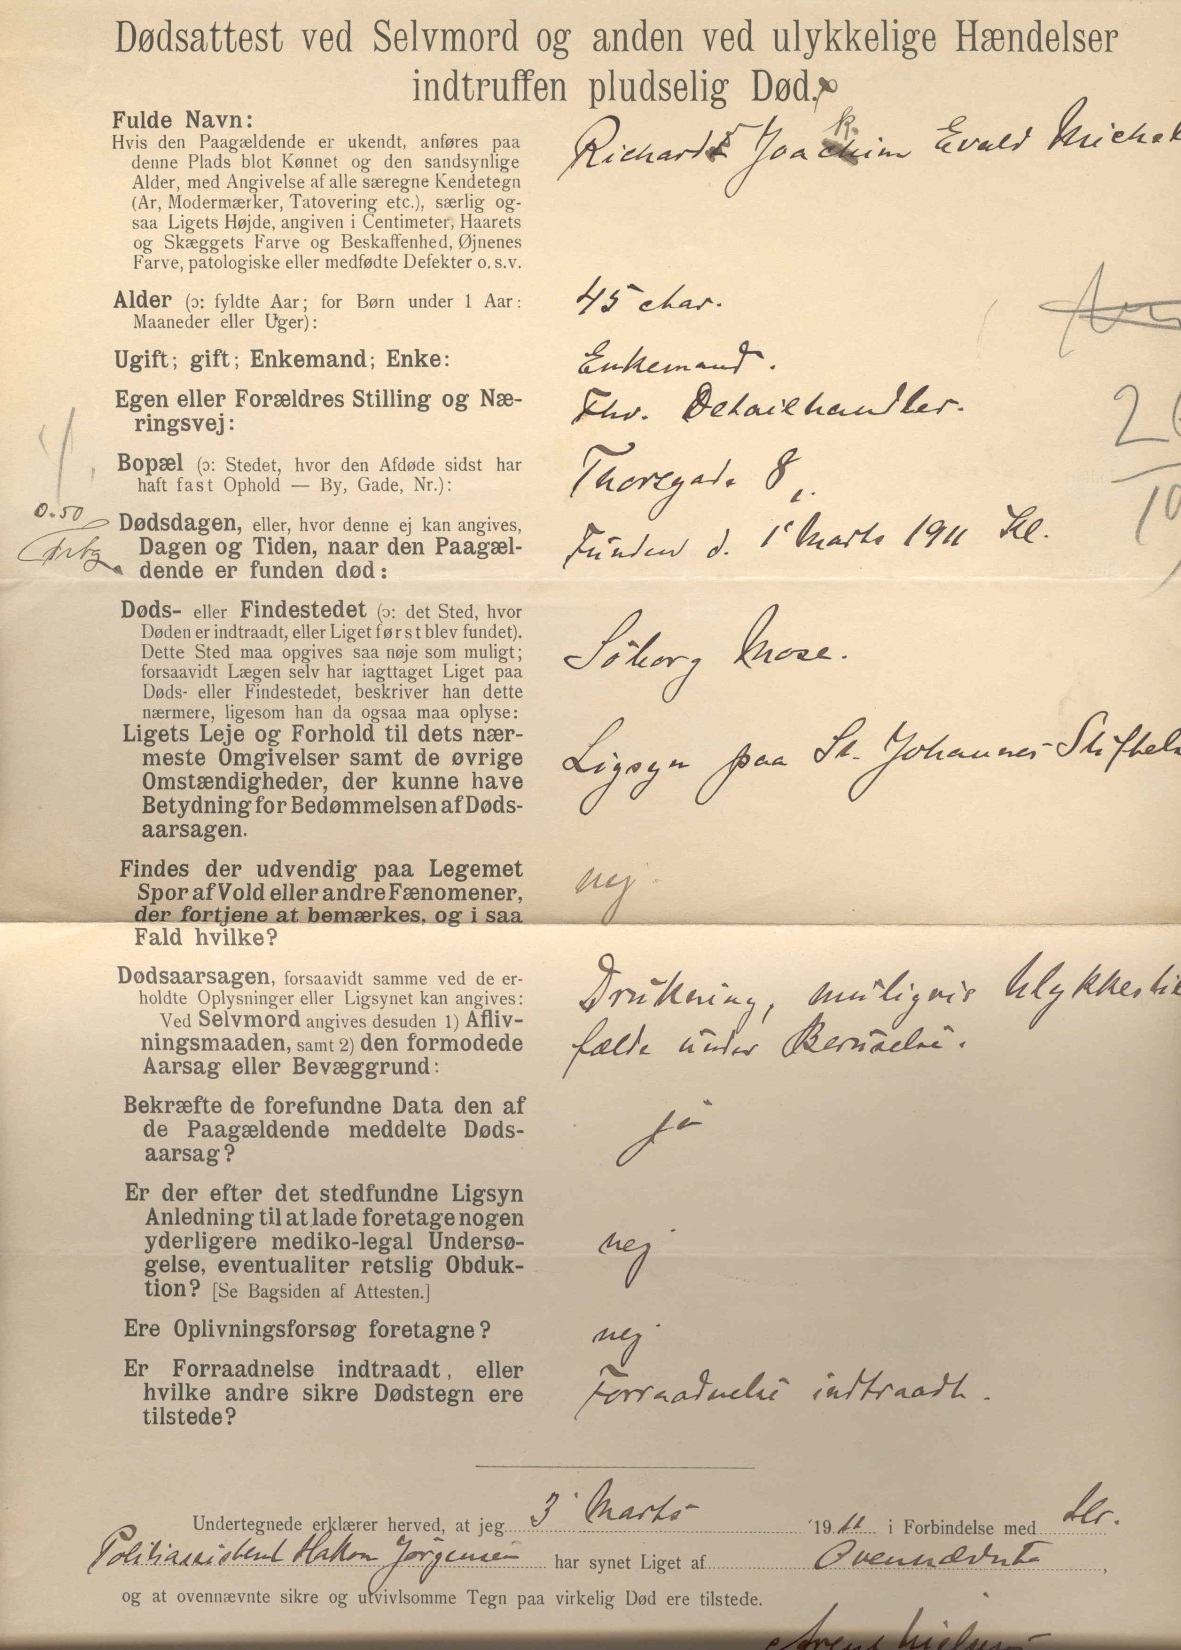 Dødsattest ved Selvmord og anden ved ulykkelige Hændelser
indtruffen pludselig Død.
Fulde Navn:
Hvis den Paagældende er ukendt, anføres paa
denne Plads blot Kønnet og den sandsynlige
Alder, med Angivelse af alle særegne Kendetegn
(Ar, Modermærker, Tatovering etc.), særlig og-
saa Ligets Højde, angiven i Centimeter, Haarets
og Skæggets Farve og Beskaffenhed, Øjnenes
Farve, patologiske eller medfødte Defekter o.s.v.
Richardt Joachim Evald
Alder (ɔ: fyldte Aar; for Børn under 1 Aar:
Maaneder eller Uger):
45
Ugift; gift; Enkemand; Enke:
Enkemand.
Egen eller Forældres Stilling og Næ-
ringsvej:
Fhv. Detailhandler.
Bopæl (ɔ: Stedet, hvor den Afdøde sidst har
haft fast Ophold — By, Gade, Nr.):
Thorsgade 8
0.50
Dødsdagen, eller, hvor denne ej kan angives,
Dagen og Tiden, naar den Paagæl-
dende er funden død:
Funden d. 1' Marts 1911 Kl.
Døds- eller Findestedet (ɔ: det Sted, hvor
Døden er indtraadt, eller Liget først blev fundet).
Dette Sted maa opgives saa nøje som muligt;
forsaavidt Lægen selv har iagttaget Liget paa
Døds- eller Findestedet, beskriver han dette
nærmere, ligesom han da ogsaa maa oplyse:
Søborg Mose.
Ligets Leje og Forhold til dets nær-
meste Omgivelser samt de øvrige
Omstændigheder, der kunne have
Betydning for Bedømmelsen af Døds-
aarsagen.
Ligsyn paa St. Johannes
Findes der udvendig paa Legemet
Spor af Vold eller andre Fænomener,
der fortjene at bemærkes, og i saa
Fald hvilke?
nej.
Dødsaarsagen, forsaavidt samme ved de er-
holdte Oplysninger eller Ligsynet kan angives:
Ved Selvmord angives desuden 1) Afliv-
ningsmaaden, samt 2) den formodede
Aarsag eller Bevæggrund:
Drukning, muligvis
fælde under Beruselse.
Bekræfte de forefundne Data den af
de Paagældende meddelte Døds-
aarsag?
ja
Er der efter det stedfundne Ligsyn
Anledning til at lade foretage nogen
yderligere mediko-legal Undersø-
gelse, eventualiter retslig Obduk-
tion? [Se Bagsiden af Attesten.]
nej
Ere Oplivningsforsøg foretagne?
nej
Er Forraadnelse indtraadt, eller
hvilke andre sikre Dødstegn ere
tilstede?
Forraadnelse indtraadt.
Undertegnede erklærer herved, at jeg 3' Marts 1911 i Forbindelse med Hr.
Politiassistent Hakon Jørgensen har synet Liget af Ovennævnte,
og at ovennævnte sikre og utvivlsomme Tegn paa virkelig Død ere tilstede.